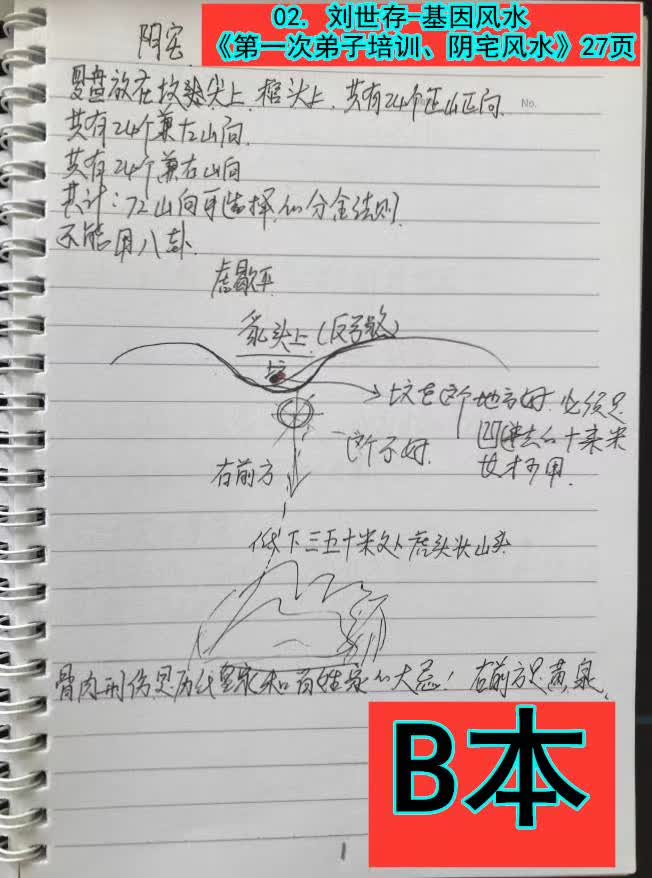 02. 刘世存-基因风水
《第一次弟子培训、阴宅风水》27页
阴宅
罗盘放在坟墓尖上.棺头上.共有24个正山正向.
No.
共有24个兼左山向.
共有24个兼右山向
共计:72山向可选择.似分金法则.
不能用八卦.
虎歇平
头上.(反弓煞)
坟
坟在这个地方好.必须是
凹进去的十来米
这个不好.
右前方
低下三五十米处虎头状山头
骨肉刑伤是历代皇家和百姓家的大忌!右前方是黄泉.
B本
1